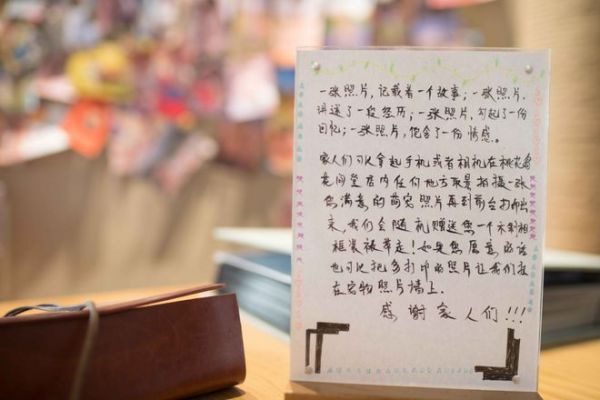 一张照片，记载着一个故事；一张照片，
讲述了一段经历；一张照片，勾起了一份
回忆；一张照片，饱含了一份情感。
家人们可以拿起手机或者相机在桃花岛
花间堂店内任何地方取景拍摄一张
您满意的萌宠照片再到前台打印出
来，我们会随礼赠送您一个木制相
框装裱带走！如果您愿意的话
也可以把多打印的照片让我们挂
在宠物照片墙上。
感谢家人们!!!